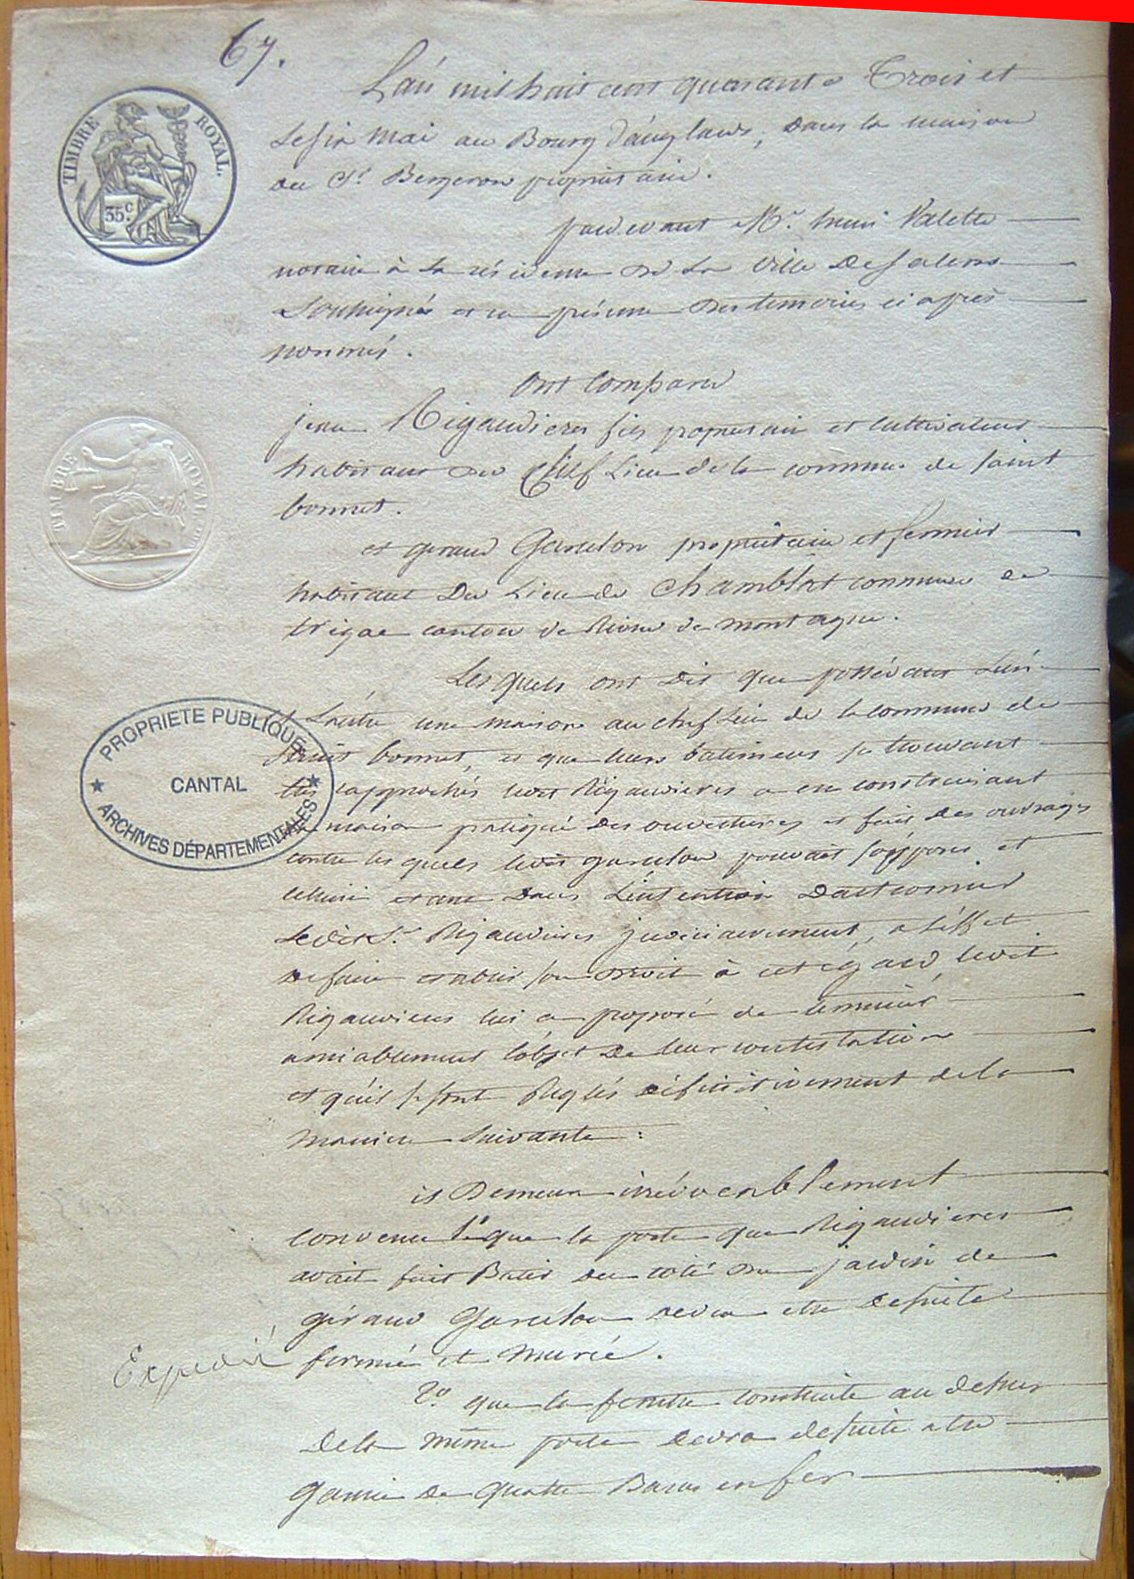 67.
TIMBRE ROYAL.
35c.
L'an mil huit cent quarante Trois et
le six mai au Bourg d'anglards, dans la maison
du Sr. Bergeron propriétaire.
pardevant Me. henri Valette
notaire à la résidence de la ville de salers
soussigné et en présence des temoins ci après
nommés.
ont Comparu
jean Rigaudieres fils propriétaire et cultivateur
habitant du Chef Lieu de la commune de saint
bonnet.
et geraud Garcelon propriétaire et fermier
habitant du Lieu de Chamblat commune de
trizac canton de Riom de montagne.
TIMBRE ROYAL
Les quels ont dit que possédant L'un
et L'autre une maison au chef Lieu de la commune de
saint bonnet, et que leurs batimens se trouvant
très rapprochés ledit Rigaudieres a en construisant
sa maison pratiqué des ouvertures et fait des ouvrages
contre les quels ledit garcelon pouvait s'opposer et
celui ci étant dans L'intention d'actionner
ledit Sr. Rigaudieres judiciairement, a l'effet
de faire etablir son droit à cet egard, ledit
Rigaudieres lui a proposé de terminer
amiablement l'objet de leur contestation
et qu'ils se sont Réglés définitivement de la
maniere suivante:
PROPRIETE PUBLIQUE
CANTAL
ARCHIVES DÉPARTEMENTALES
il Demeure irrévocablement
convenu 1o que la porte que Rigaudieres
avait fait Batir du coté du jardin de
géraud Garcelon devra etre de suite
fermée et murée.
Expedié
2o. que la fenetre construite au dessus
de la même porte devra de suite etre
garnie de quatre Barres en fer